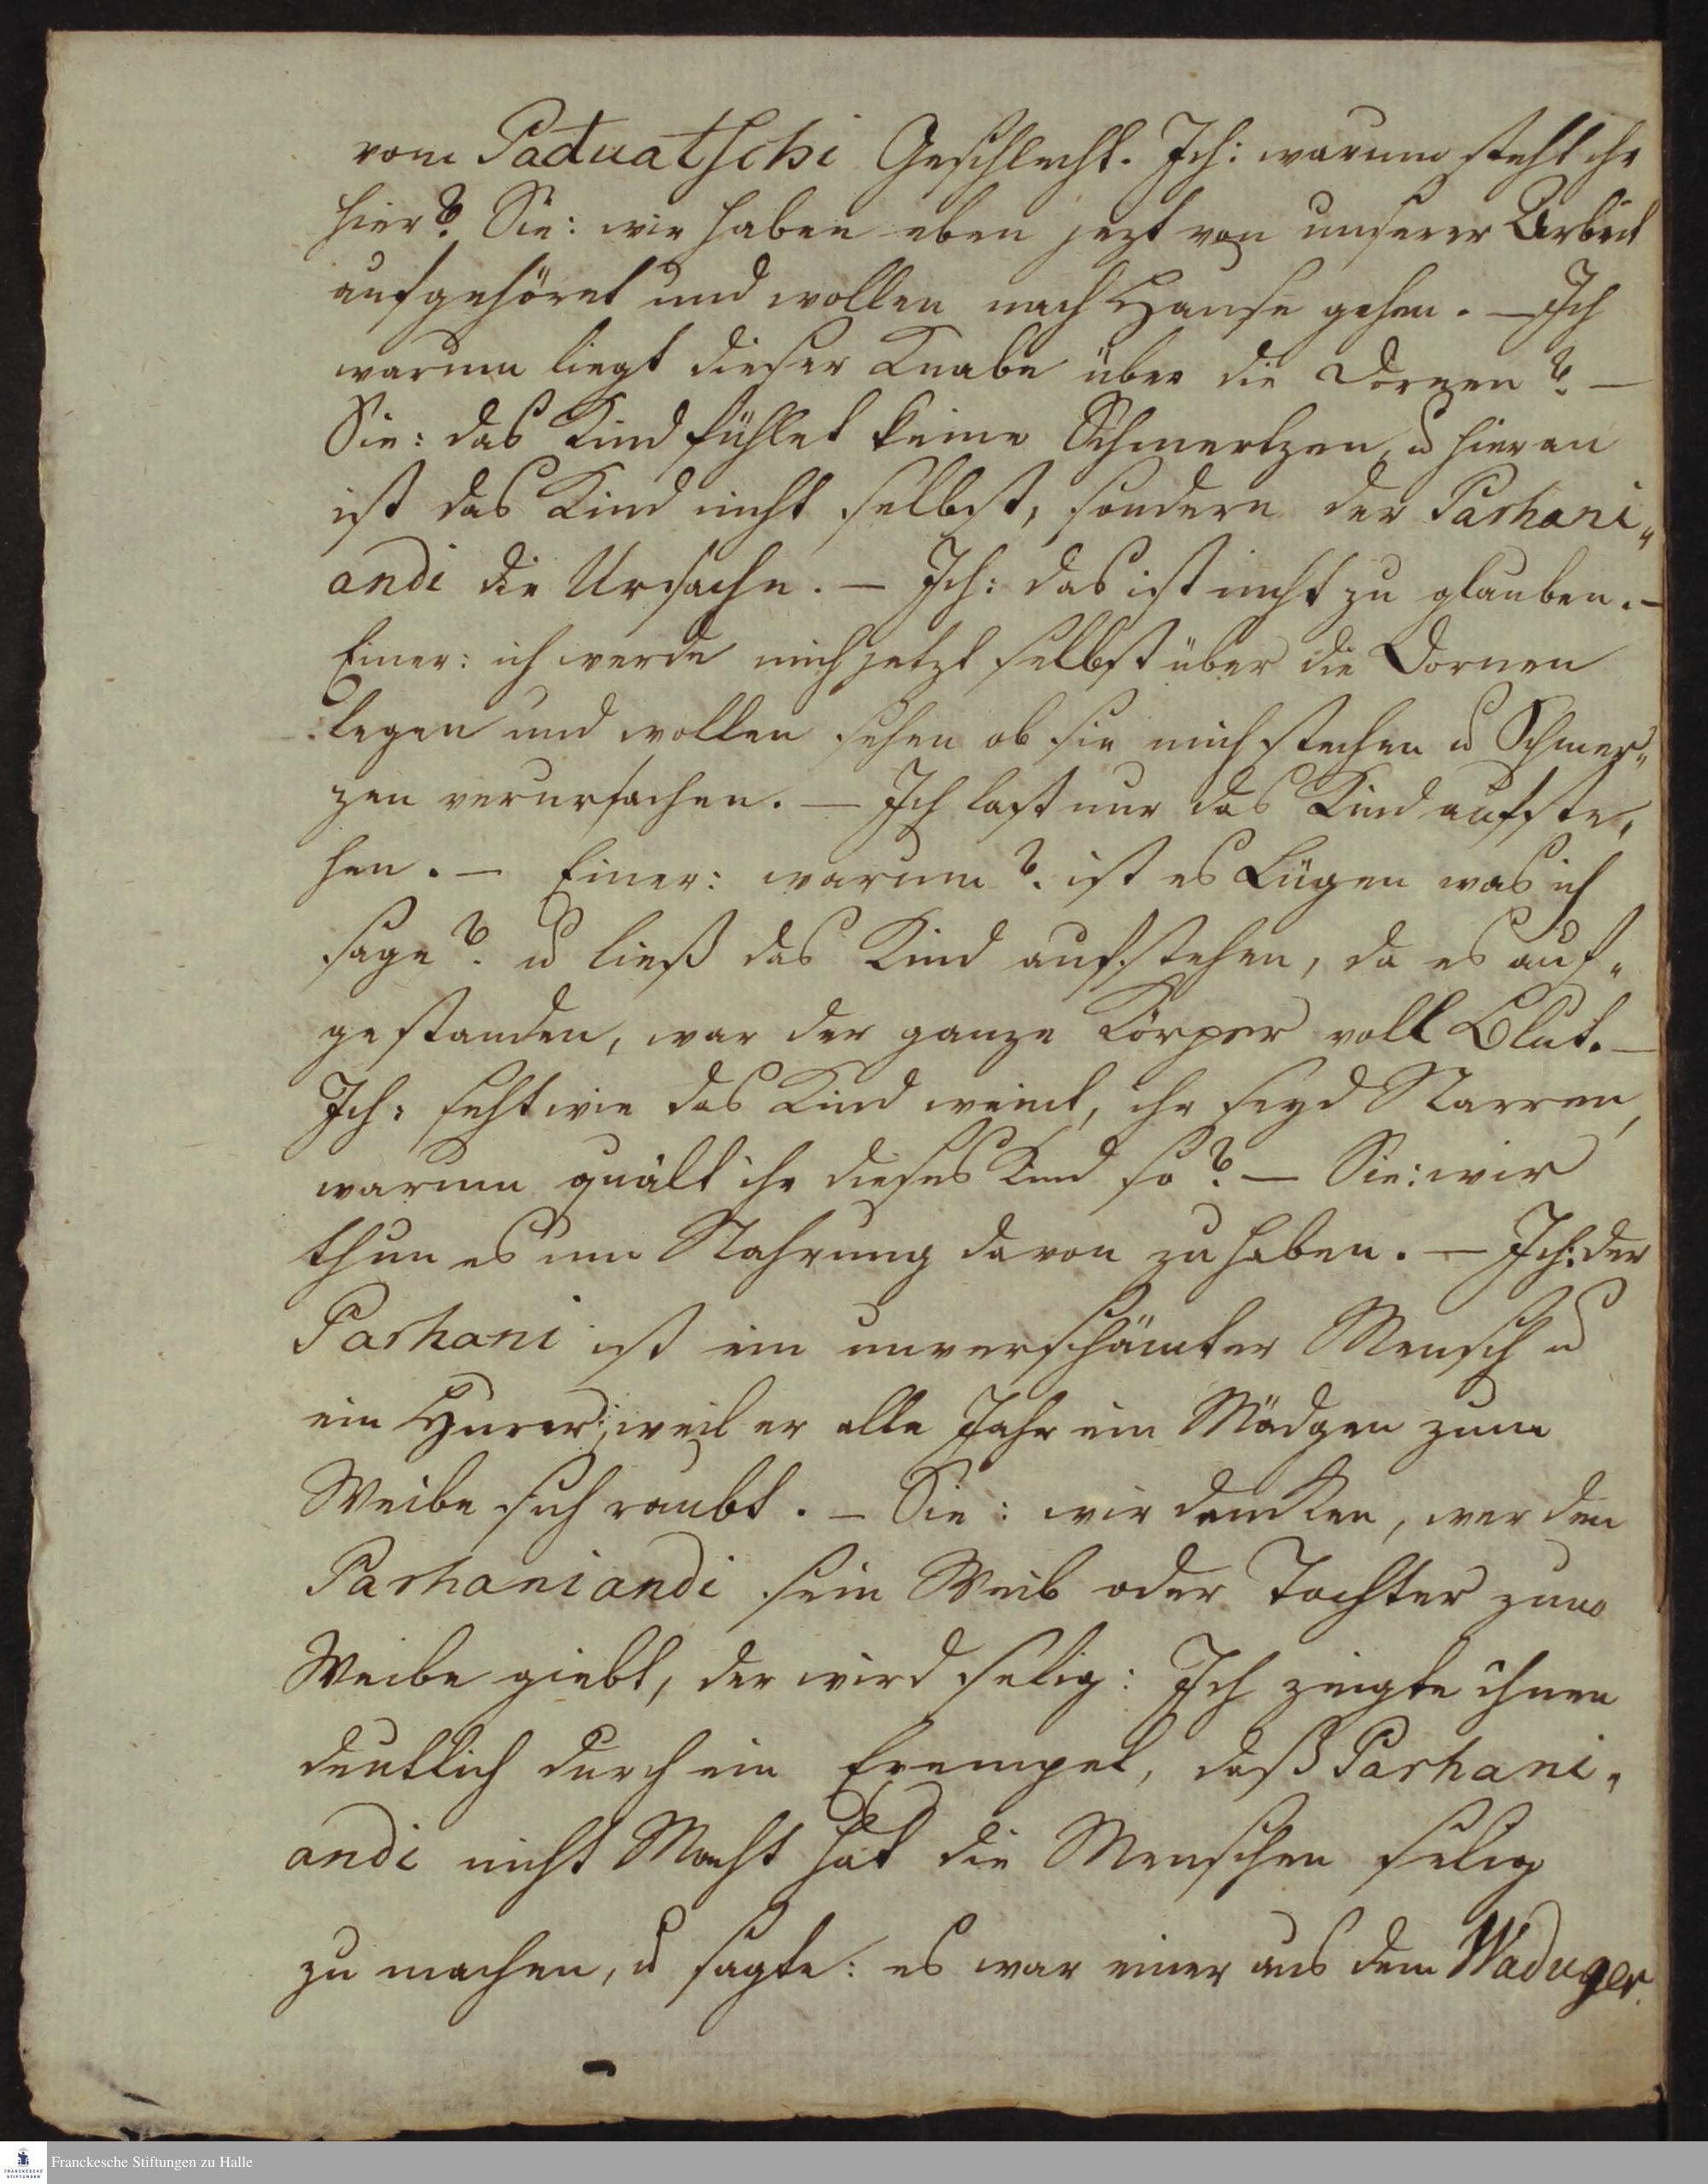 vom Paduatschi Geschlecht. Ich: warum steht ihr
hier? Sie: wir haben eben jezt von unserer Arbeit
aufgehöret und wollen nach Hause gehen. — Ich
warum liegt dieser Knabe über die Dornen? —
Sie: das Kind fühlet keine Schmertzen, u hieran
ist das Kind nicht selbst, sondern der Parhani„
andi die Ursache. — Ich: das ist nicht zu glauben. —
Einer: ich werde mich jetzt selbst über die Dornen
legen und wollen sehen ob sie mich stechen u Schmer„
zen verursachen. — Ich last nur das Kind aufste„
hen. — Einer: warum? ist es Lügen was ich
sage? u ließ das Kind aufstehen, da es auf„
gestanden, war der ganze Körper voll Blut. —
Ich: seht wie das Kind weint, ihr seyd Narren,
warum quält ihr dieses Kind so? — Sie: wir
thun es um Nahrung davon zu haben. — Ich: der
Parhani ist ein unverschämter Mensch u
ein Hurer; weil er alle Jahr ein Mädgen zum
Weibe sich raubt. — Sie: wir dencken, wer dem
Parhaniandi sein Weib oder Tochter zum
Weibe giebt, der wird selig: Ich zeigte ihnen
deutlich durch ein Exempel, daß Parhani„
andi nicht Macht hat die Menschen selig
zu machen, u sagte: es war einer aus dem Waduger
Franckesche Stiftungen zu Halle
FRANCKESCHE
STIFTUNGEN